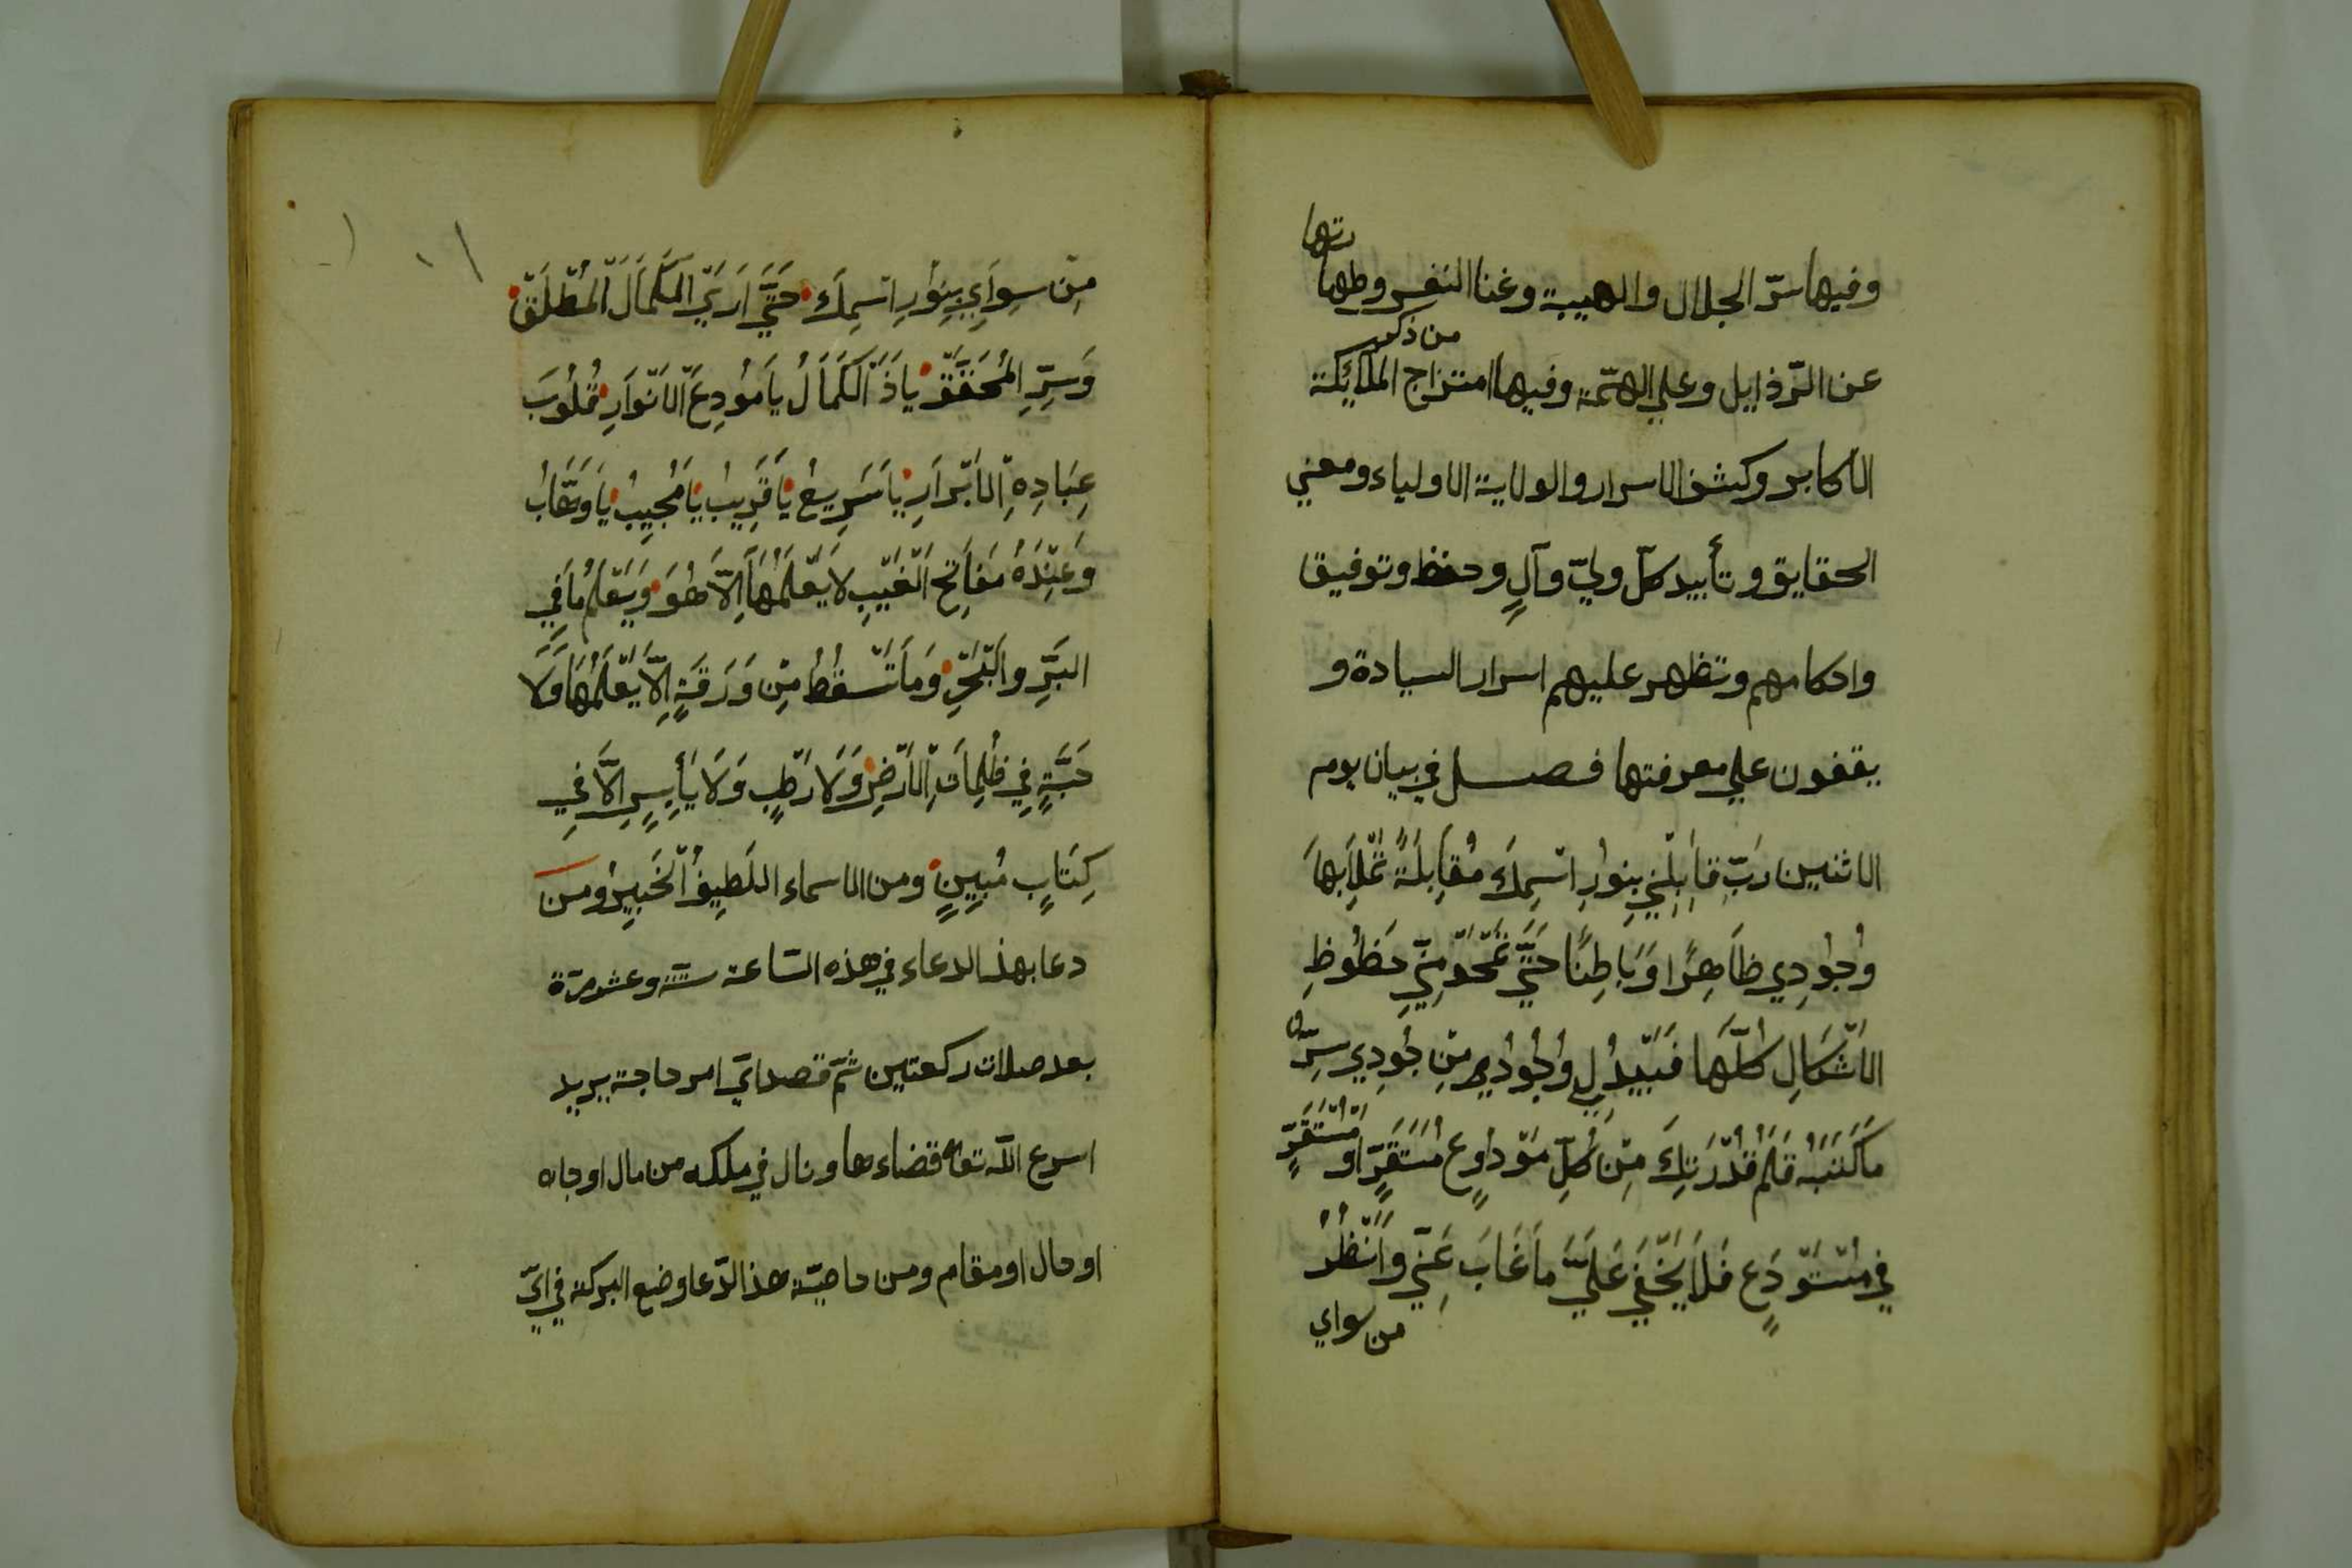 وفيها سرّ الجلال والهيبة وغنا النفس وطهارتها
عن الرّذايل وعلي الهمّة وفيها امتزاج من ذكر الملآئكة
الأكابر وكشف الاسرار والولاية الاولياء ومعني
الحقايق وتأييد كلّ وليّ وآلٍ وحفظ وتوفيق
واحكامهم وتظهر عليهم اسرار السيادة و
يقفون علي معرفتها فصل في بيان يوم
الاثنين رَبِّ قَابِلْنِي بِنُورِ اسْمِكَ مُقَابِلَةً تَمْلَأُ بِهَا
وُجُودِي ظَاهِرًا وَبَاطِنًا حَتَّي تَمْحُوَ مِنِّي حَظُوظِ
الأَشْكَالِ كُلَّهَا فَيَبْدُ لِي وُجُودِي مِنْ جُودِي سِرِّ
مَا كَتَبَهُ قَلَمُ قُدْرَتِكَ مِنْ كُلِّ مَوْدُوعٍ مُسْتَقَرٍّ او مُسْتَقَرٍّ
في مُسْتَوْدَعٍ فَلَا يَخْفَي عَلَيَّ مَا غَابَ عَنِّي وَانْظُرْ
من سواي
مِنْ سِوَايِ بِنُورِ اسْمِكَ حَتَّي اَرَي الْكَمَالَ الْمُطْلَقَ
وَسِرِّ الْمُحَقَّقِ يَاذَا الْكَمَالُ يَا مُودِعَ الاَنْوَارِ قُلُوبَ
عِبَادِهِ الأَبْرَارِ يَا سَرِيعُ يَا قَرِيبُ يَا مُجِيبُ يَا وَهَّابُ
وَعِنْدَهُ مَفَاتِحُ الْغَيْبِ لاَ يَعْلَمُهَا اِلاَّ هُوَ وَيَعْلَمُ مَا فِي
البَرِّ والبَحْرِ وَمَا تَسْقُطُ مِنْ وَرَقَةٍ اِلاَّ يَعْلَمُهَا وَلَا
حَبَّةٍ فِي ظُلِمَاتِ الأَرْضِ وَلَا رَطْبٍ وَلَا يَابِسٍ اِلَّا فِي
كِتَابٍ مُبِينٍ ومن الاسماء اللَطِيفُ الْخَبِيرُ ومن
دعا بهذ الدعاء في هذه السّاعة ستّة وعشر مرّة
بعد صلات ركعتين ثمّ قصد ايّ امر حاجة يريد
اسرع اللّه تعالى قضاءها ونال في ملكه من مال او جاه
او حال او مقام ومن خاصيّة هذ الدّعا وضع البركة في ايّ